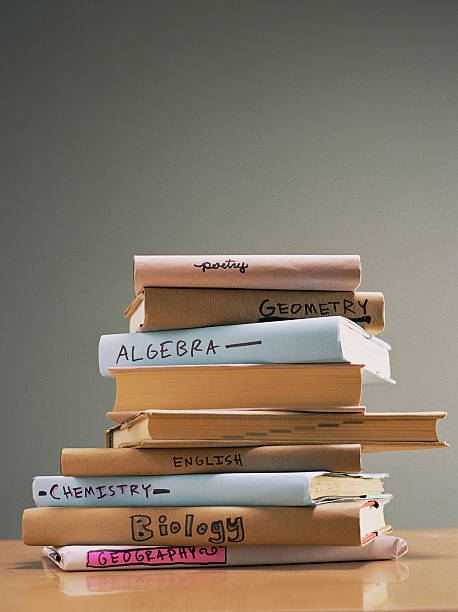 poetry
GEOMETRY
ALGEBRA
ENGLISH
CHEMISTRY
BiOlOgy
GEOGRAPHY